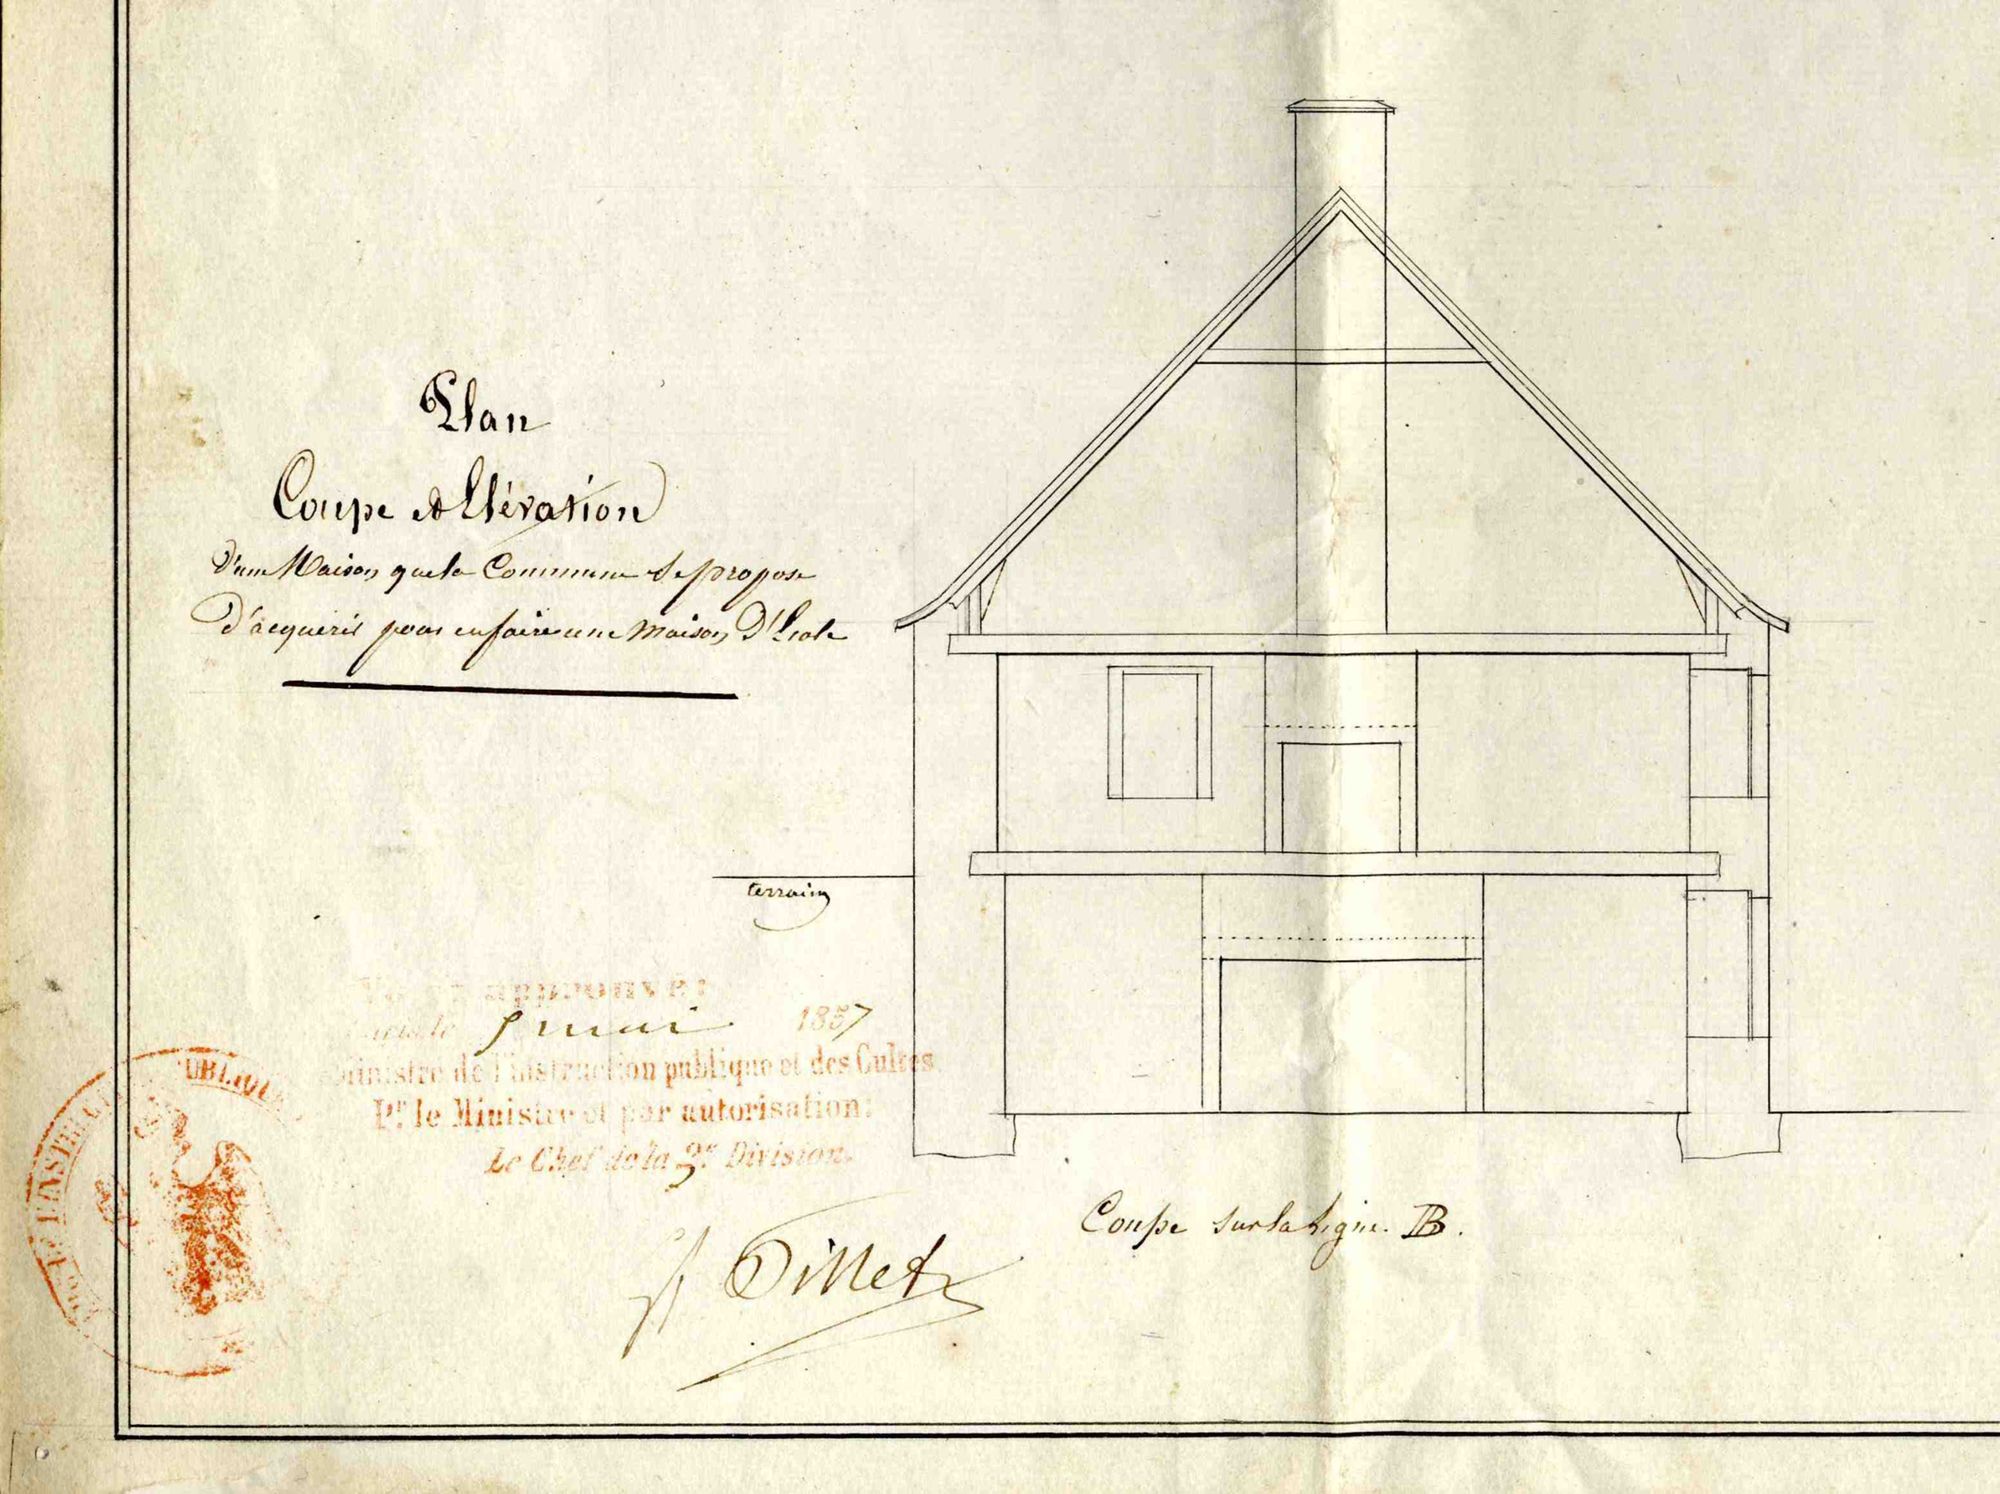 Plan
Coupe et Elévation
D'une Maison que la Commune se propose
d'acquérir pour en faire une Maison D'Ecole
terrain
approuvé
le 5 mai 1857
Ministre de l'instruction publique et des Cultes
Pr le Ministre et par autorisation:
Le Chef de la 3e Division.
UBLIQU
L'INSTRUC
Pillet
Coupe sur la Ligne B.